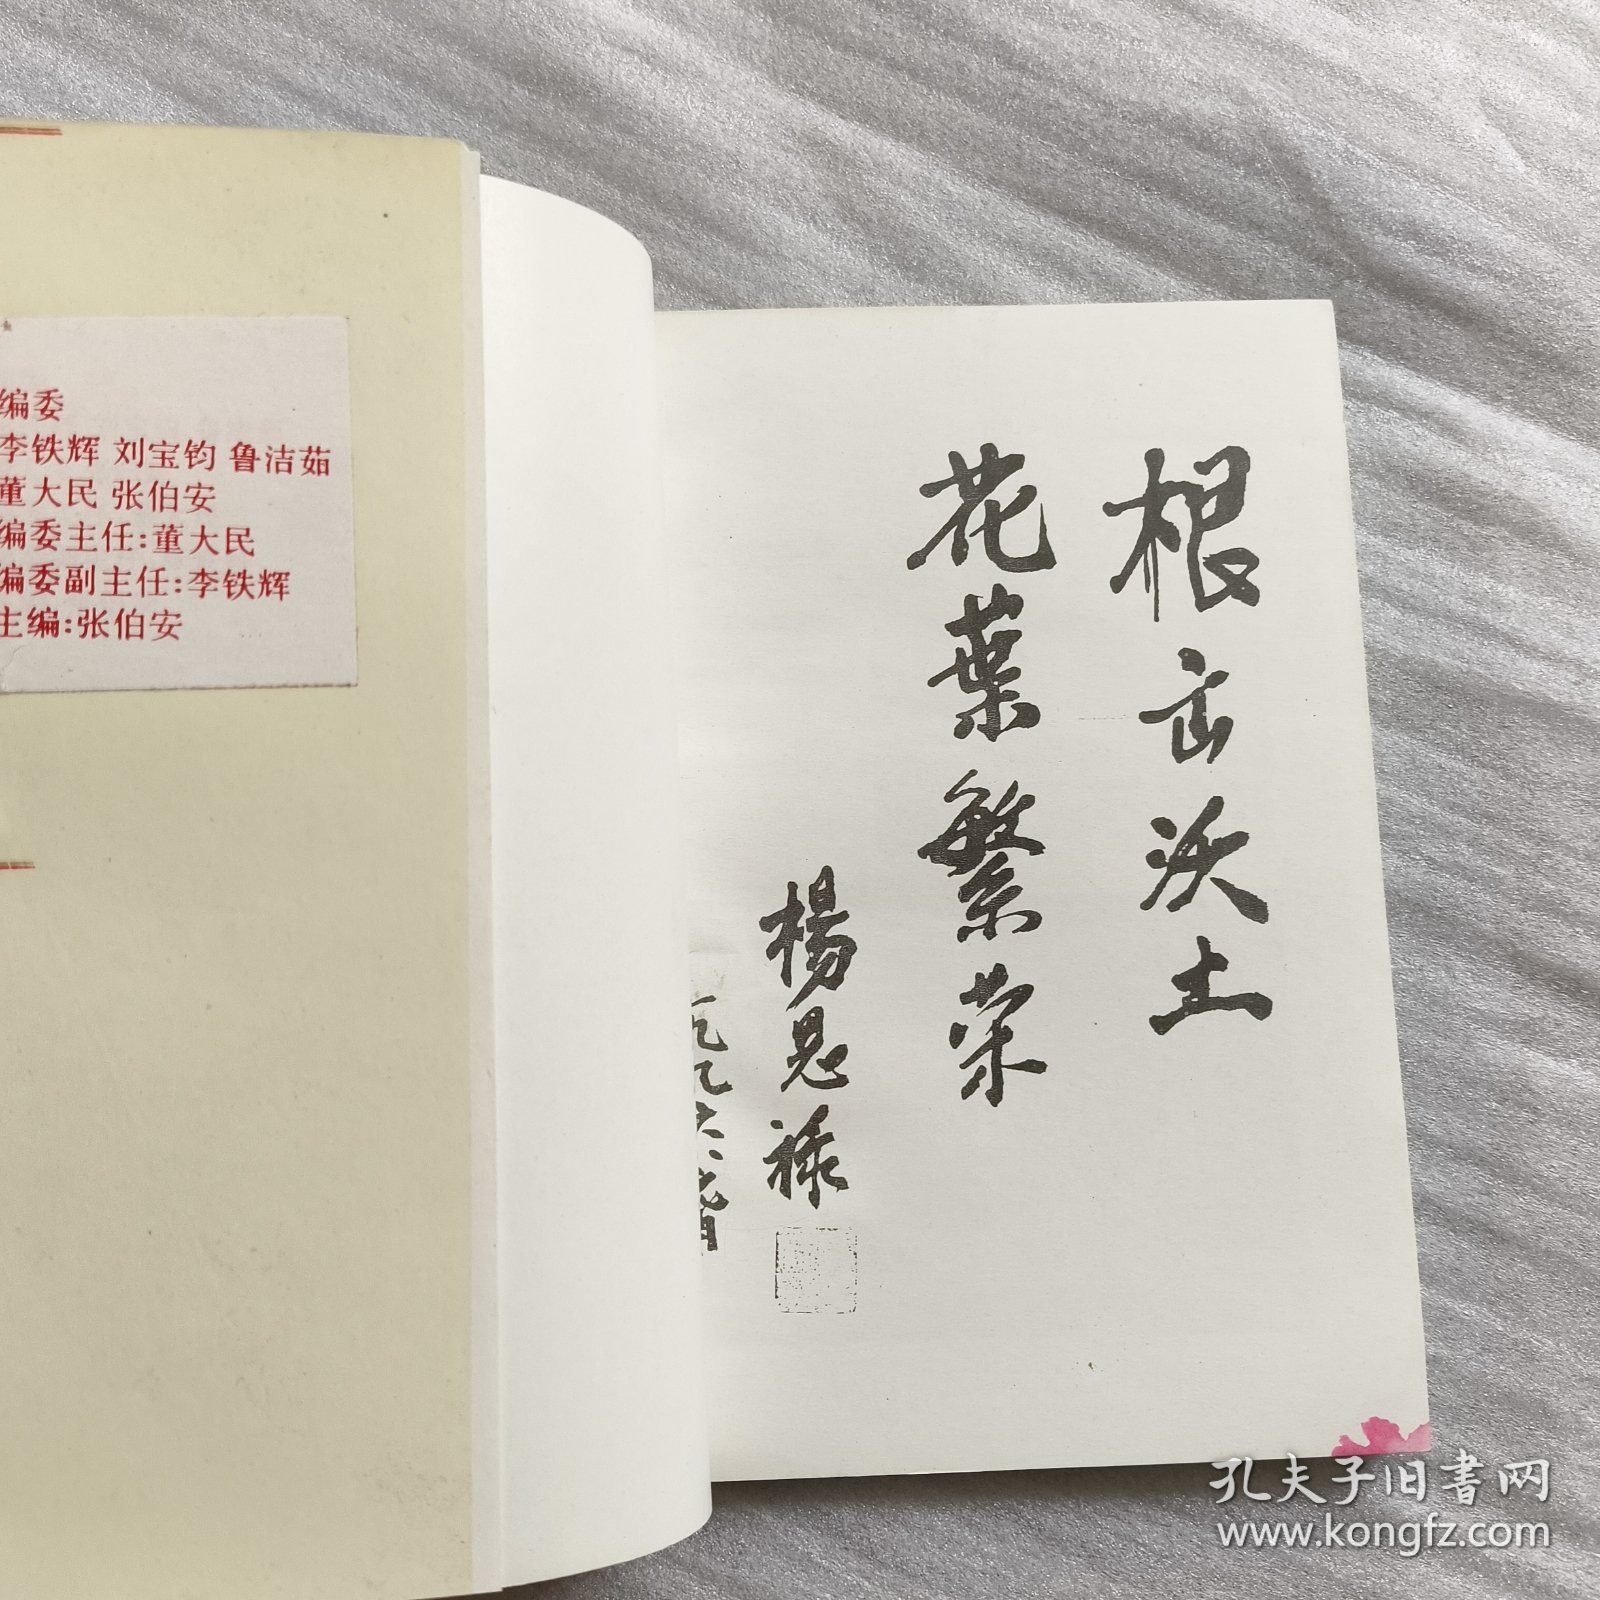 编委
李铁辉 刘宝钧 鲁洁茹
董大民 张伯安
编委主任:董大民
编委副主任:李铁辉
主编:张伯安
根在沃土
花葉繁荣
楊思禄
九九六
孔夫子旧书网
www.kongfz.com